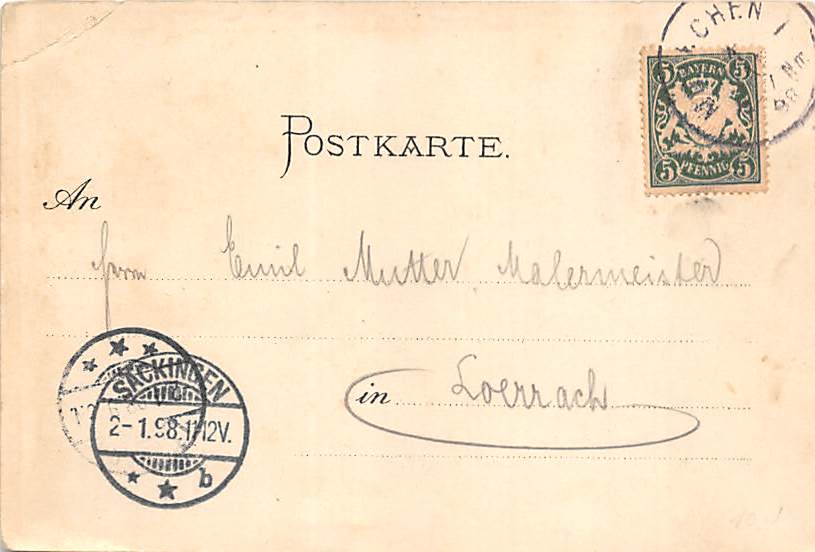 CHEN I
Nm
98
5 BAYERN 5
5 PFENNIG 5
POSTKARTE.
An
Herrn Emil Mutter, Malermeister
in Loerrach
SÄCKINGEN
2-1.98.11-12V.
b